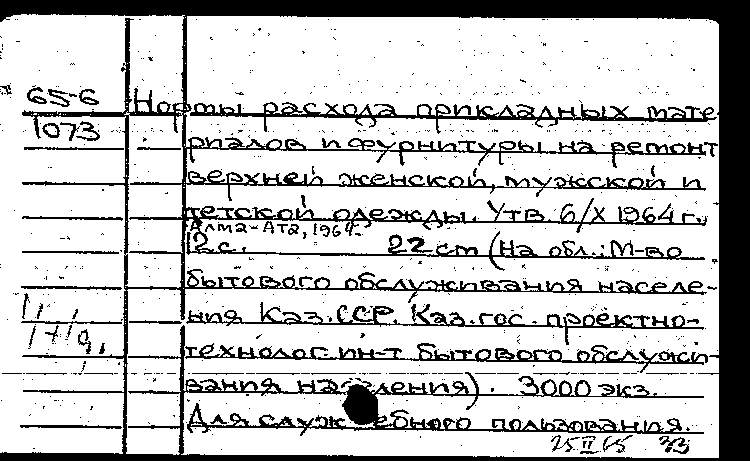 65-6
1073
Нормы расхода прикладных мате-
риалов и фурнитуры на ремонт
верхней женской, мужской и
детской одежды. Утв. 6/X 1964 г.
Алма-Ата, 1964.
12 с. 22 cm (На обл.: М-во
бытового обслуживания населе-
ния Каз.ССР. Каз.гос. проектно-
технолог. ин-т бытового обслужи-
вания населения). 3000 экз.
Для служебного пользования.
25 II 65